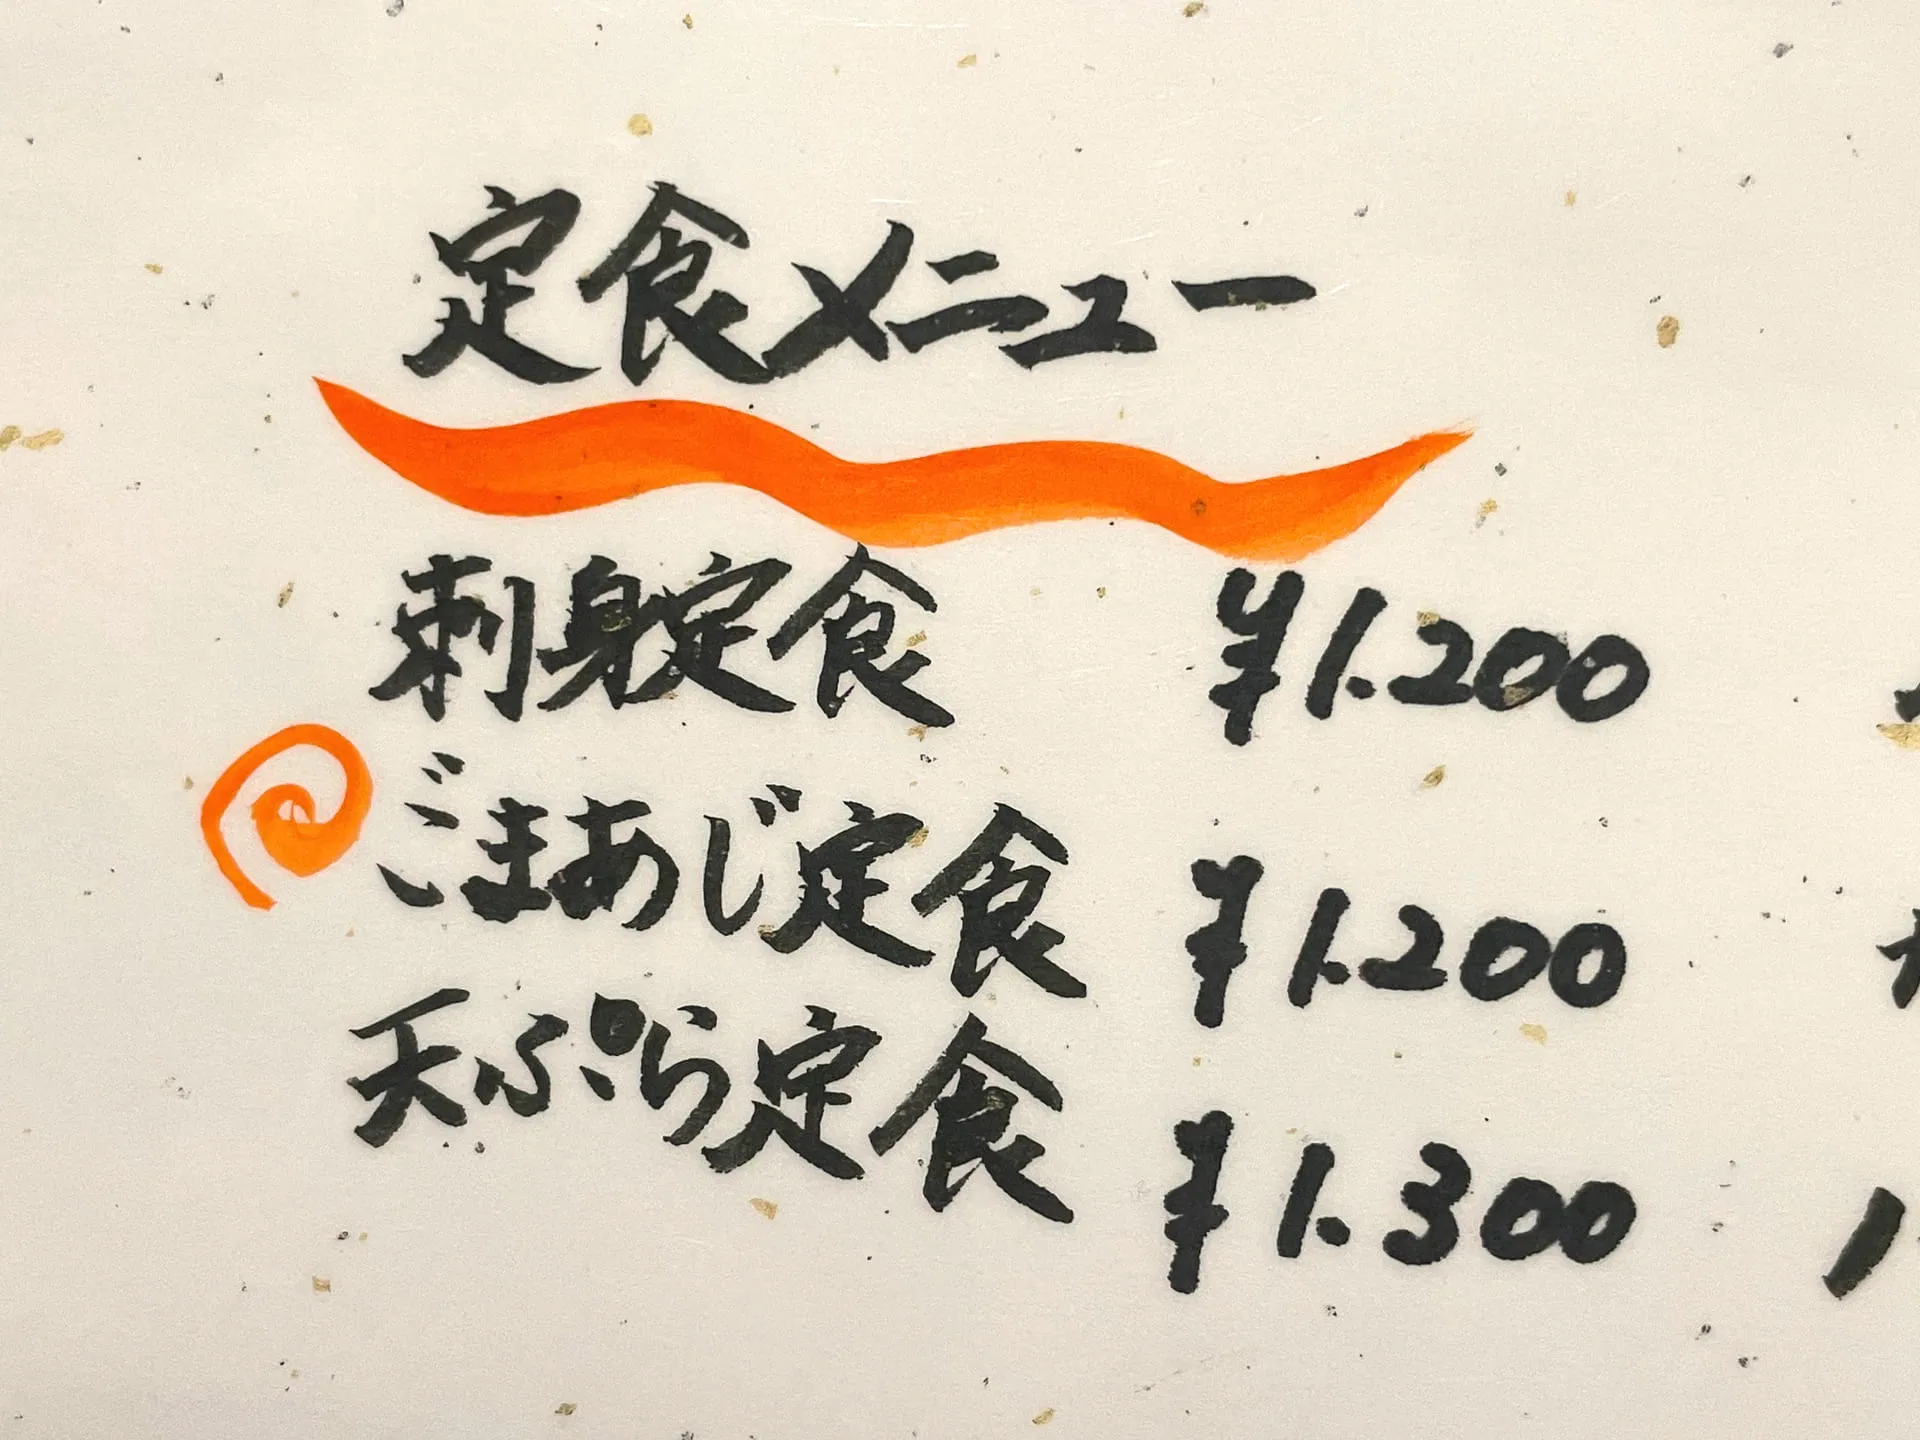 定食メニュー
刺身定食 ¥1.200
ごまあじ定食 ¥1.200
天ぷら定食 ¥1.300